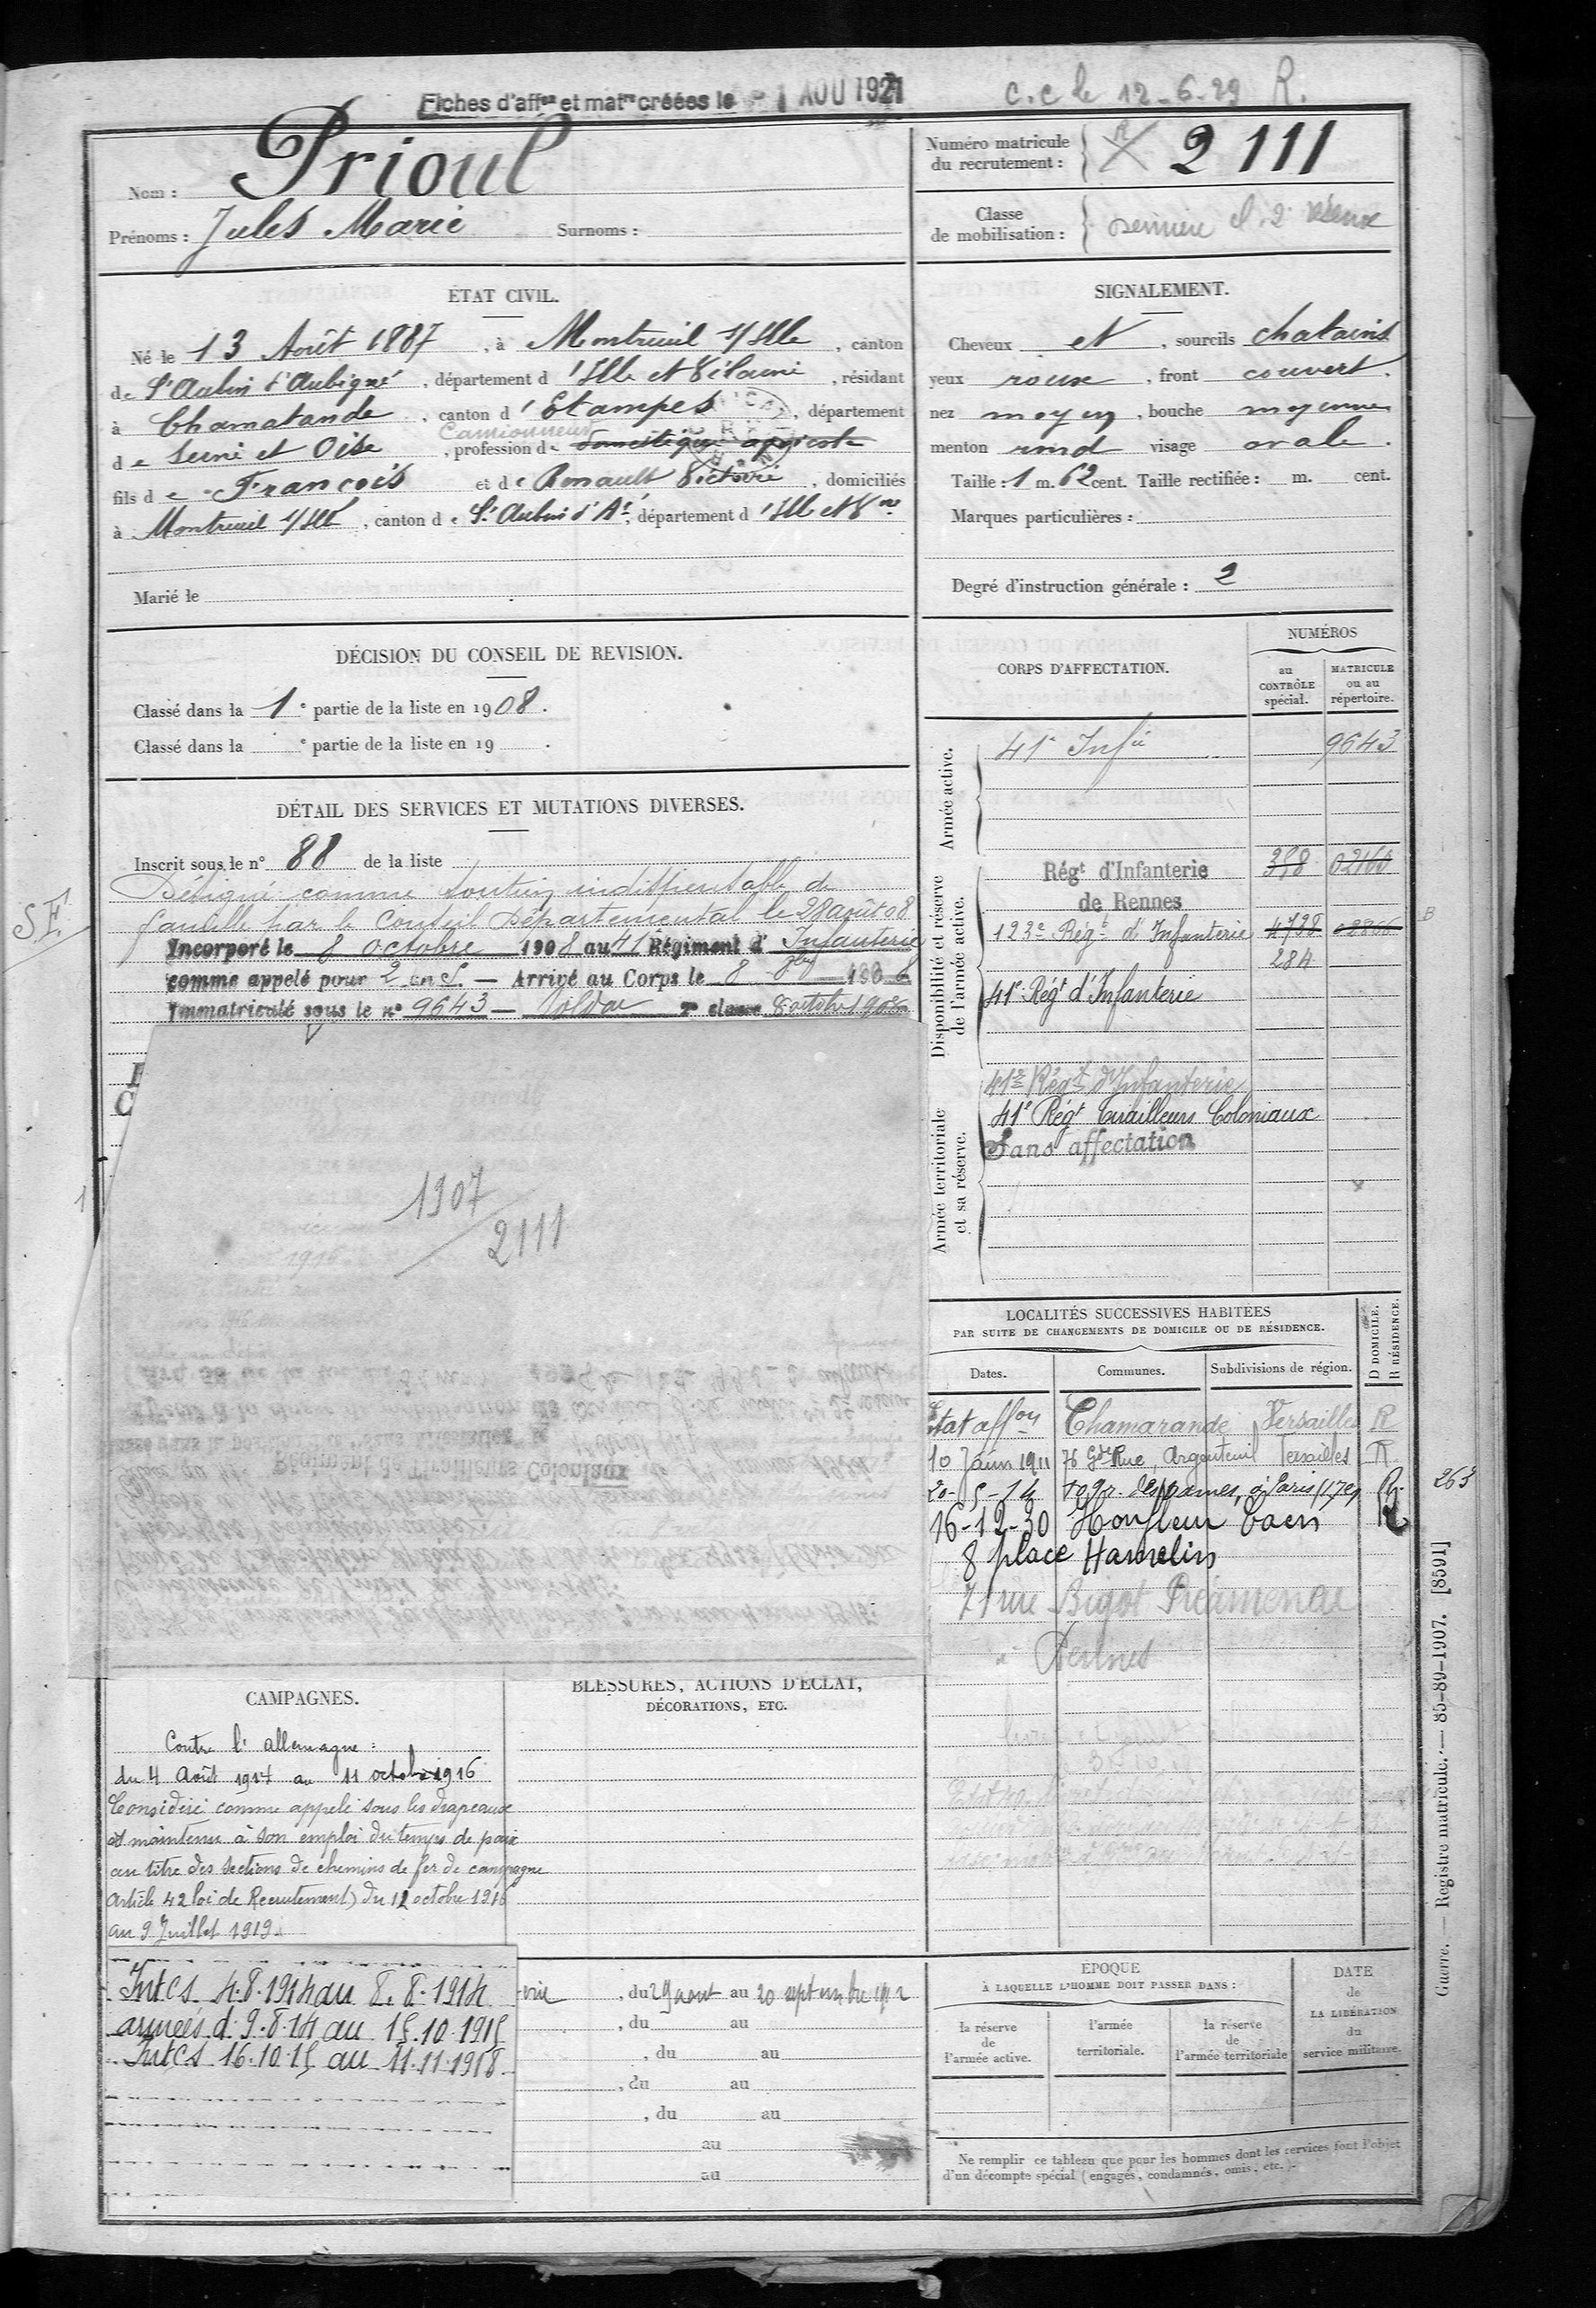 Fiches d'affon et matre créées le 1 AOU 1921
c.c le 12-6-29 R.
Nom : Prioul
Prénoms : Jules Marie Surnoms :
Numéro matricule du recrutement : 2111
Classe de mobilisation :
ÉTAT CIVIL.
Né le 13 Août 1887, à Montreuil s/Ille, canton
de St Aubin d'Aubigné, département d'Ille et Vilaine, résidant
à Chamarande, canton d'Etampes, département
Camionneur
de Seine et Oise, profession de domestique agricole
fils de François et de Renault Victoire, domiciliés
à Montreuil s/Ille, canton de St Aubin d'Aé, département d'Ille et Vne
Marié le
SIGNALEMENT.
Cheveux et, sourcils chatains
yeux roux, front couvert.
nez moyen, bouche moyenne
menton rond visage ovale.
Taille : 1 m. 62 cent. Taille rectifiée : m. cent.
Marques particulières :
Degré d'instruction générale : 2
DÉCISION DU CONSEIL DE REVISION.
Classé dans la 1e partie de la liste en 1908.
Classé dans la e partie de la liste en 19 .
DÉTAIL DES SERVICES ET MUTATIONS DIVERSES.
Inscrit sous le n° 88 de la liste
Désigné comme soutien indispensable de
famille par le Conseil Départemental le 28 août 08
S.F.
Incorporé le 8 octobre 1908 au 41 Régiment d'Infanterie
comme appelé pour 2 ans. — Arrivé au Corps le 8 8bre 1908
Immatriculé sous le n° 9643 — Soldat 2e classe 8 octobre 1908
1907
2111
CORPS D'AFFECTATION.
NUMÉROS
au CONTRÔLE spécial.
MATRICULE ou au répertoire.
Armée active.
41e Infie 9643
Disponibilité et réserve de l'armée active.
Régt d'Infanterie 358 02160
de Rennes
123e Régt d'Infanterie 4738
284
41e Régt d'Infanterie
Armée territoriale et sa réserve.
41e Régt d'Infanterie
41e Régt Tirailleurs Coloniaux
Sans affectation
LOCALITÉS SUCCESSIVES HABITÉES
PAR SUITE DE CHANGEMENTS DE DOMICILE OU DE RÉSIDENCE.
Dates. Communes. Subdivisions de région. D DOMICILE. R RÉSIDENCE.
Etat affon Chamarande Versailles R
10 Janv 1911 76 Gde Rue, Argenteuil Versailles R
20-5-14 des Dames, à Paris (17e) R 263
16-12-30 Honfleur Caen R
8 place Hamelin
71 rue Bigot Préameneu
à Rennes
CAMPAGNES.
Contre l'allemagne :
du 4 Août 1914 au 11 octobre 1916
Considéré comme appelé sous les drapeaux
et maintenu à son emploi du temps de paix
au titre des sections de chemins de fer de campagne
article 42 loi de Recrutement) du 12 octobre 1916
au 9 Juillet 1919.
Int CS 4.8.1914 au 8.8.1914
armées d. 9.8.14 au 15.10.1915
Int CS 16.10.15 au 11.11.1918
BLESSURES, ACTIONS D'ÉCLAT,
DÉCORATIONS, ETC.
, du 29 aout au 20 septembre 1912
, du au
, du au
, du au
, du au
au
au
ÉPOQUE
À LAQUELLE L'HOMME DOIT PASSER DANS :
la réserve de l'armée active.
l'armée territoriale.
la réserve de l'armée territoriale
DATE de LA LIBÉRATION du service militaire.
Ne remplir ce tableau que pour les hommes dont les services font l'objet
d'un décompte spécial (engagés, condamnés, omis, etc.).
Guerre. — Registre matricule. — 85-89-1907. [8591]